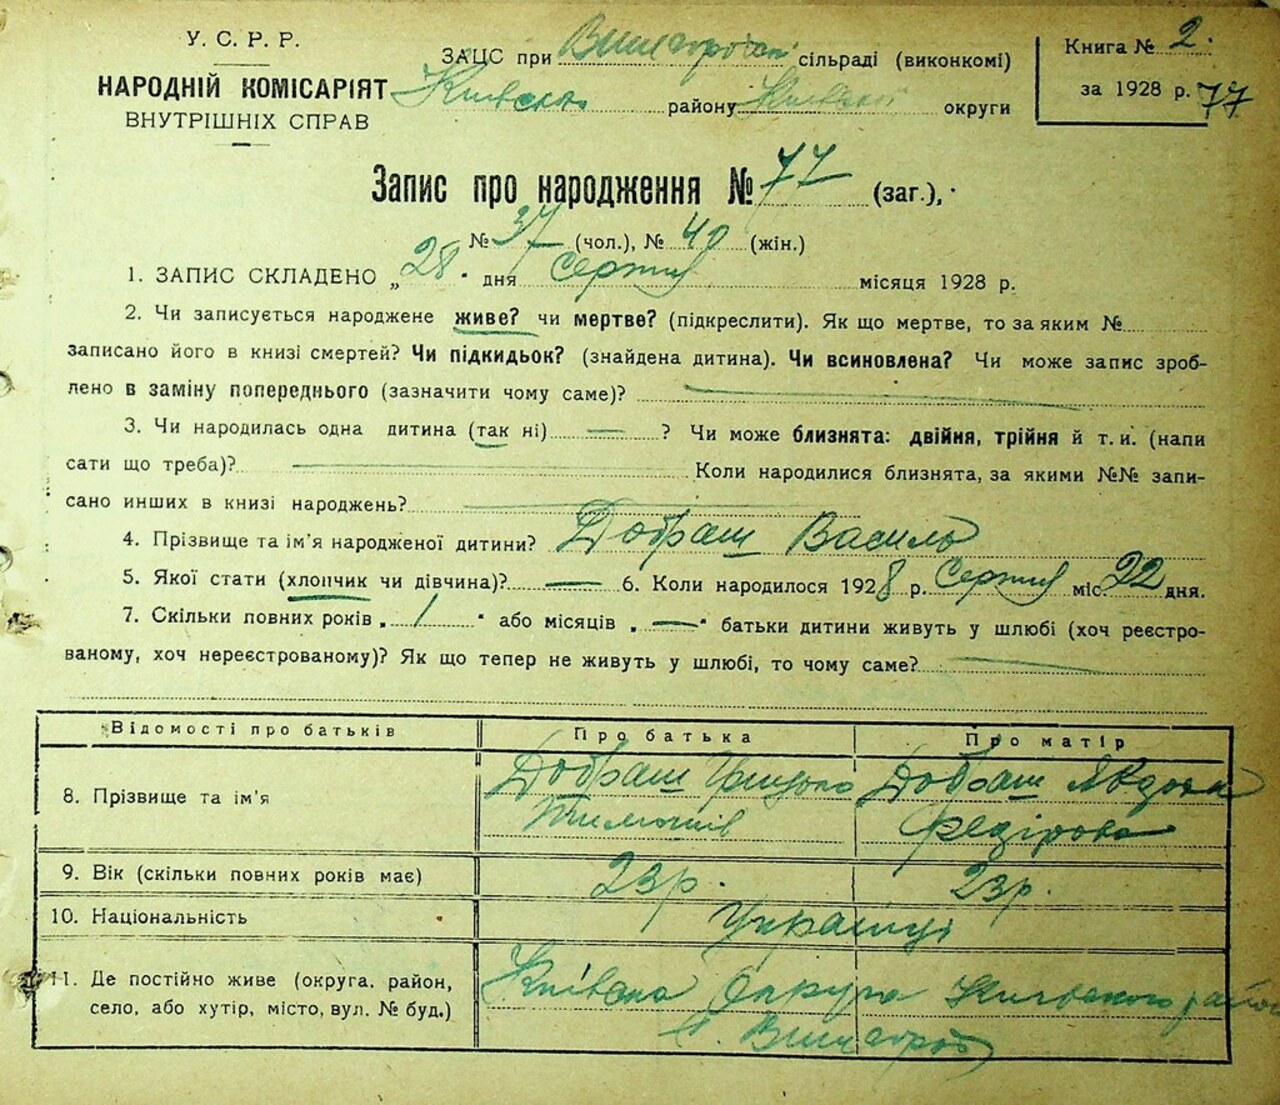 У. С. Р. Р.
НАРОДНІЙ КОМІСАРІЯТ
ВНУТРІШНІХ СПРАВ
ЗАЦС при сільраді (виконкомі)
району округи
Книга № 2.
за 1928 р. 77
Запис про народження № 77 (заг.),
№ 37 (чол.), № 40 (жін.)
1. ЗАПИС СКЛАДЕНО „28" дня Серпня місяця 1928 р.
2. Чи записується народжене живе? чи мертве? (підкреслити). Як що мертве, то за яким №
записано його в книзі смертей? Чи підкидьок? (знайдена дитина). Чи всиновлена? Чи може запис зроб-
лено в заміну попереднього (зазначити чому саме)? —
3. Чи народилась одна дитина (так ні) — ? Чи може близнята: двійня, трійня й т. и. (напи
сати що треба)? — Коли народилися близнята, за якими №№ запи-
сано инших в книзі народжень? —
4. Прізвище та ім'я народженої дитини? Добраш Василь
5. Якої стати (хлопчик чи дівчина)? — 6. Коли народилося 1928 р. Серпня міс. 22 дня.
7. Скільки повних років „ 1 " або місяців „ — " батьки дитини живуть у шлюбі (хоч реєстро-
ваному, хоч нереєстрованому)? Як що тепер не живуть у шлюбі, то чому саме? —
Відомості про батьків Про батька Про матір
8. Прізвище та ім'я Добраш Грицько Добраш Явдоха
Тимошів Федірова
9. Вік (скільки повних років має) 23 р. 23 р.
10. Національність Українці
11. Де постійно живе (округа, район,
село, або хутір, місто, вул. № буд.)
Київська Округа Київського район
с. Вишгород